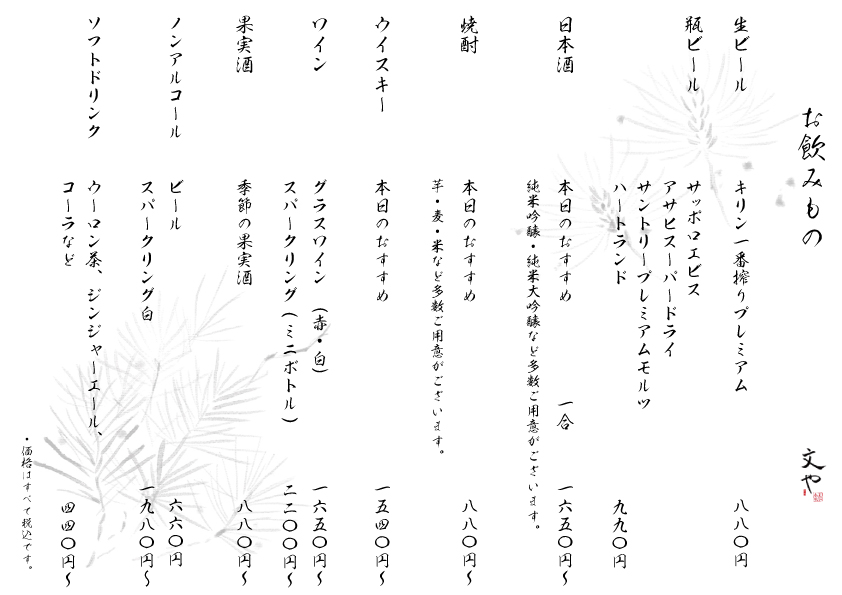 お飲みもの
文や
生ビール キリン一番搾りプレミアム 八八〇円
瓶ビール サッポロエビス
アサヒスーパードライ
サントリープレミアムモルツ
ハートランド 九九〇円
日本酒 本日のおすすめ 一合 一六五〇円〜
純米吟醸・純米大吟醸など多数ご用意がございます。
焼酎 本日のおすすめ 八八〇円〜
芋・麦・米など多数ご用意がございます。
ウイスキー 本日のおすすめ 一五四〇円〜
ワイン グラスワイン (赤・白) 一六五〇円〜
スパークリング (ミニボトル) 二二〇〇円〜
果実酒 季節の果実酒 八八〇円〜
ノンアルコール ビール 六六〇円
スパークリング白 一九八〇円〜
ソフトドリンク ウーロン茶、ジンジャーエール、
コーラなど 四四〇円〜
・価格はすべて税込です。